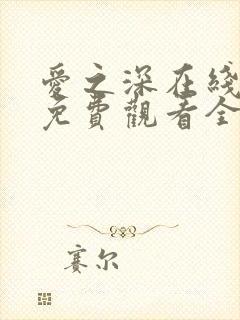 愛之深在綫
免費觀看全
賽尔